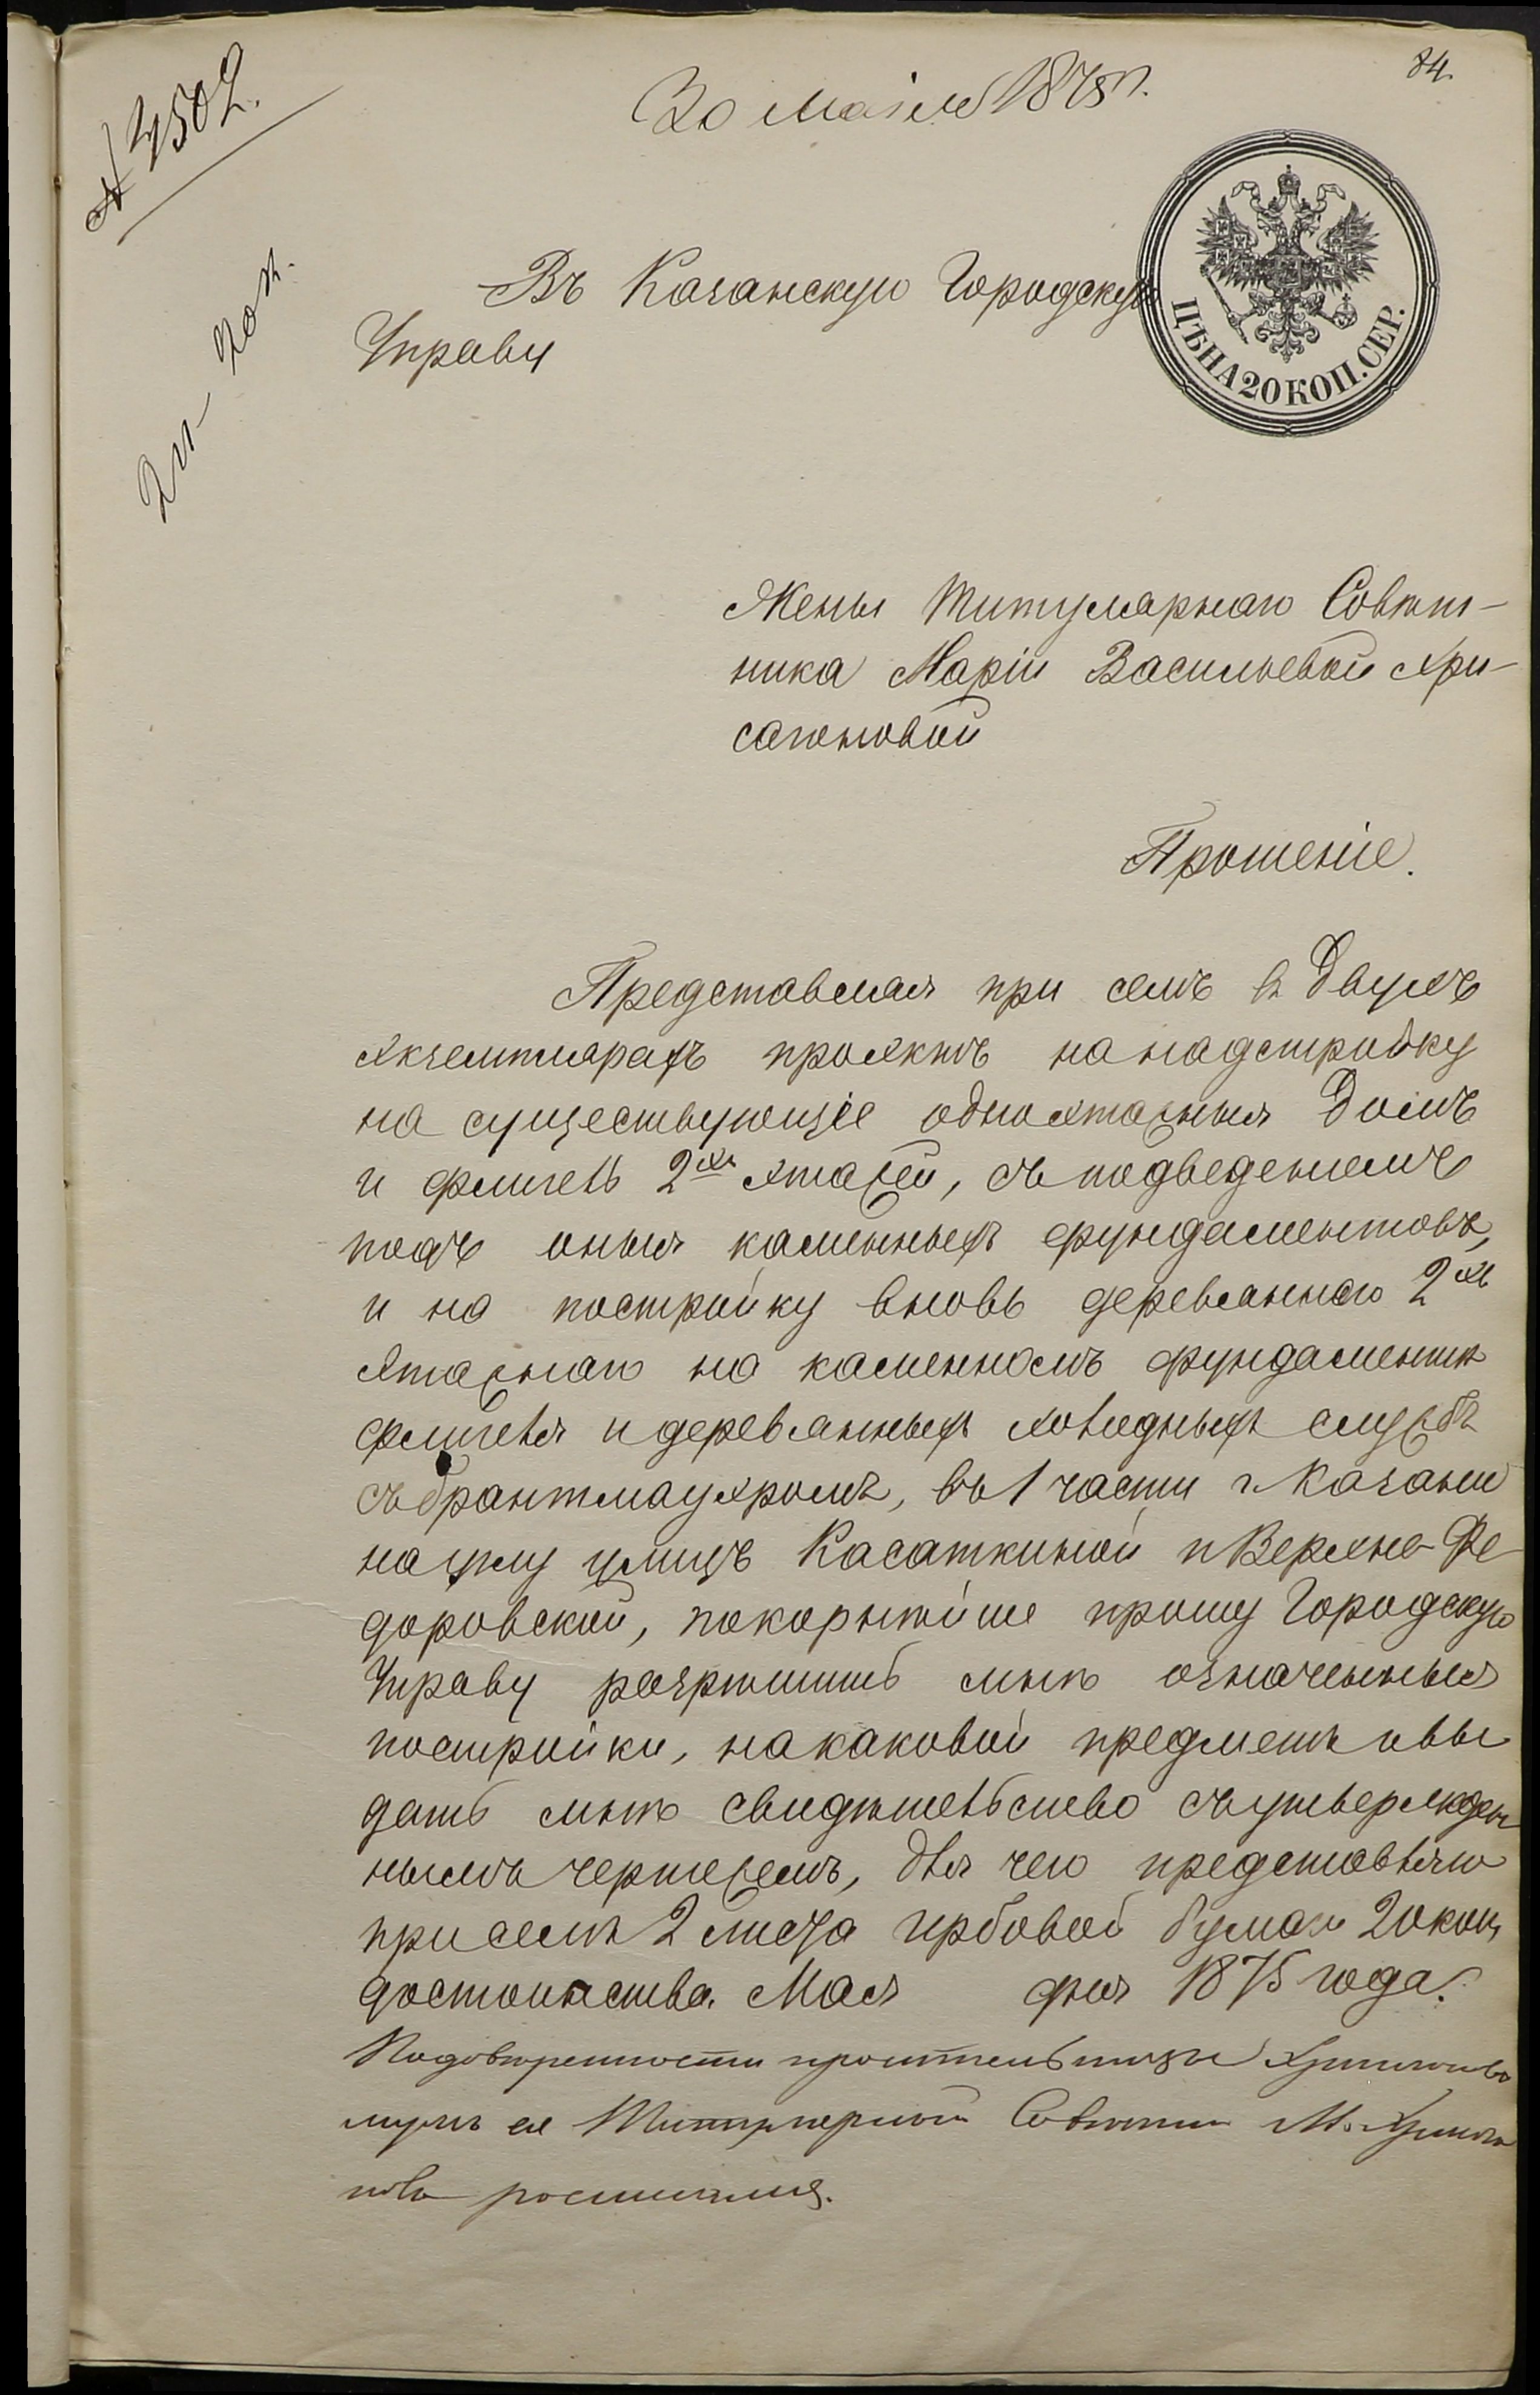 84.
30 Маія 1875 г.
№ 3502.
Въ Казанскую Городскую
Управу
ЦѢНА 20 КОП. СЕР.
Жены Титулярнаго Совѣт-
ника Маріи Васильевой Хри-
сагоновой
Прошеніе.
Представляя при семъ въ двухъ
экземплярахъ проэктъ на надстройку
на существующіе одноэтажныя домъ
и флигель 2хъ этажей, съ подведеніемъ
подъ оныя каменныхъ фундаментовъ,
и на постройку вновь деревяннаго 2хъ
этажнаго на каменномъ фундаментѣ
флигеля и деревянныхъ холодныхъ службъ
съ брантмауэромъ, въ 1 части г. Казани
на углу улицъ Касаткиной и Верхне-Фе-
доровской, покорнѣйше прошу Городскую
Управу разрѣшить мнѣ означенныя
постройки, на каковой предметъ и вы
дать мнѣ свидѣтельство съ утвержден
нымъ чертежемъ, для чего представляю
при семъ 2 листа гербовой бумаги 20 коп,
достоинства. Мая дня 1875 года.
По довѣренности просительницы
мужъ ея Титулярный Совѣтник М. Хрисаго
новъ росписался.